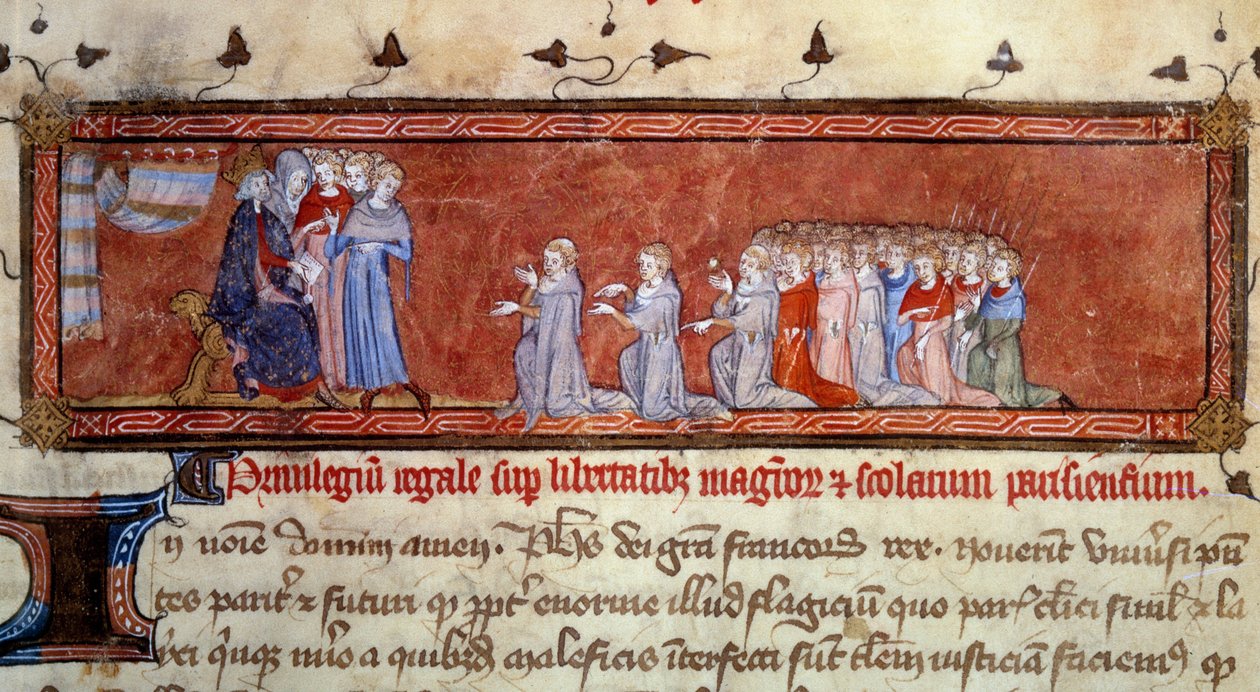 Priuilegiū regale sup̱ libertatibꝫ magr̄oꝝ ⁊ scolarium parisiensium.
In noīe domini amen. Ph̄s dei grā francorꝝ rex. Nouerīt vniu̓si pn̄
tes parit̓ ⁊ futuri qꝫ ꝓpt̓ enorme illud flagiciū quo par̓ cl̓ici simul ⁊ la
yci q̓nqꝫ nūo a quibꝫdā maleficis īterfecti sūt iusticiā faciemꝰ